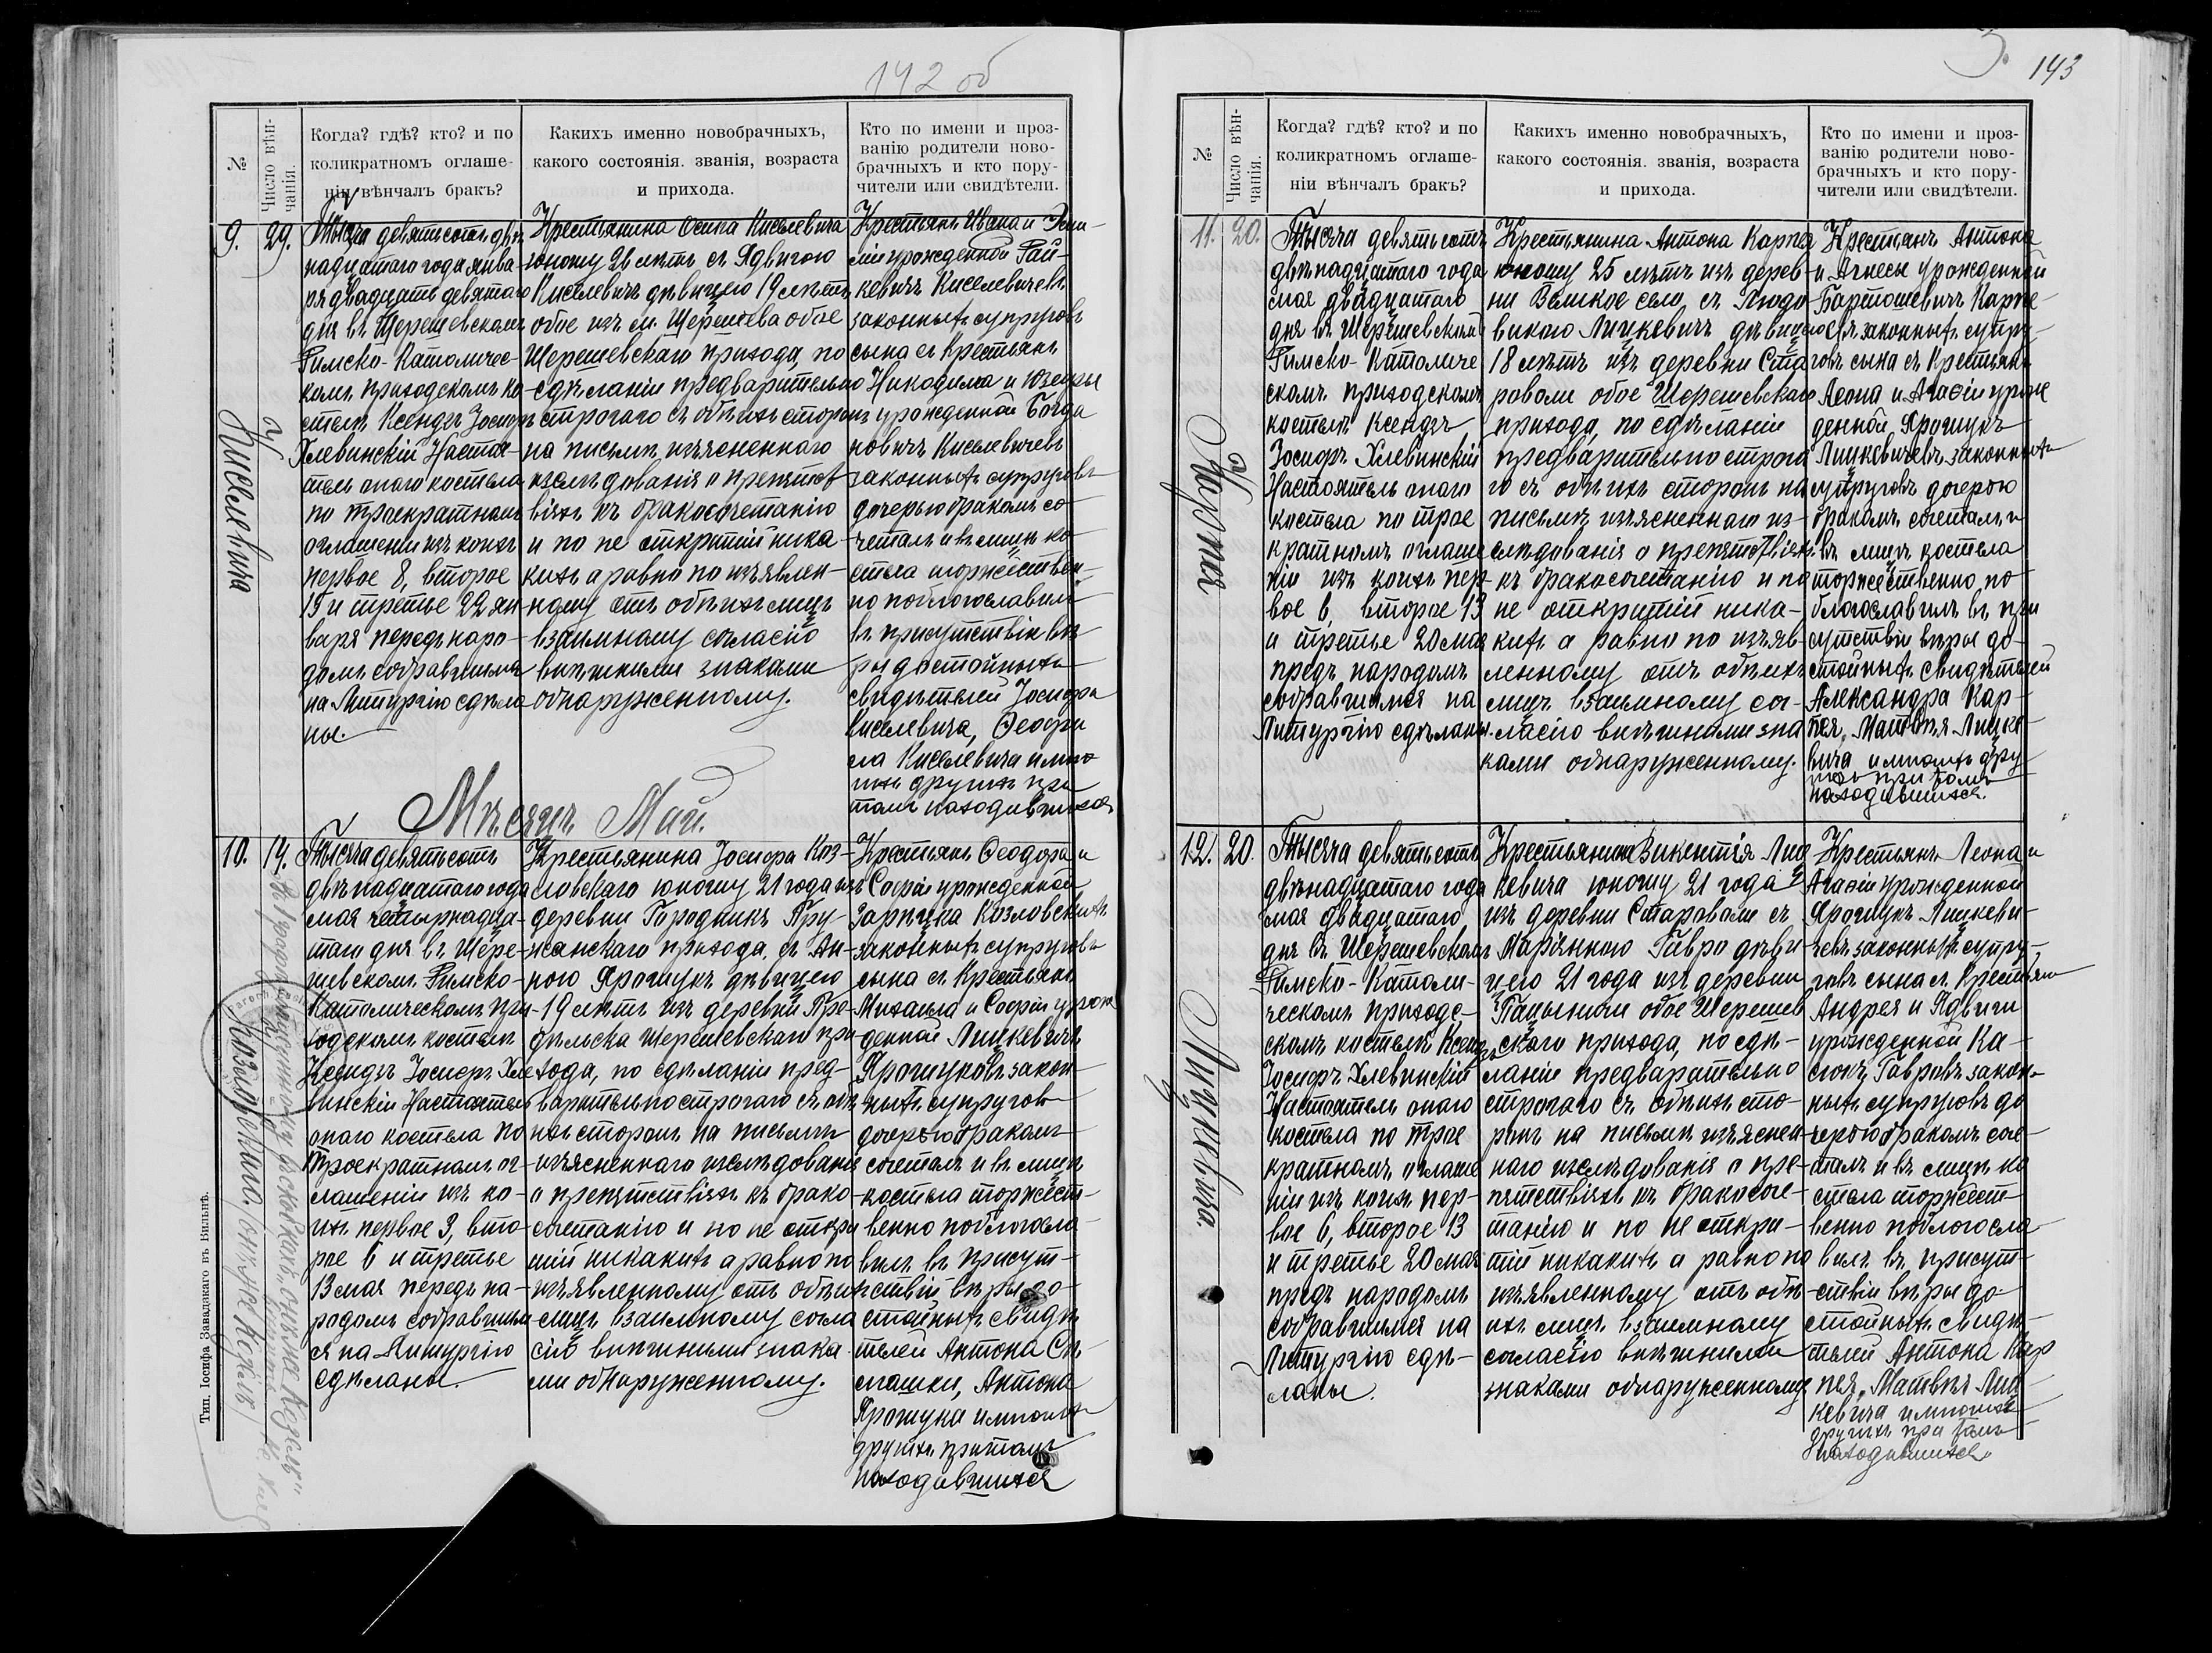 142 об
№
Число вѣн-
чанія.
Когда? гдѣ? кто? и по
коликратномъ оглаше-
ніи вѣнчалъ бракъ?
Какихъ именно новобрачныхъ,
какого состоянія. званія, возраста
и прихода.
Кто по имени и проз-
ванію родители ново-
брачныхъ и кто пору-
чители или свидѣтели.
9.
29.
Киселевича
Тысяча девятьсотъ двѣ-
надцатаго года янва-
ря двадцать девятаго
дня въ Шерешевскомъ
Римско-Католичес-
комъ приходскомъ ко-
стелѣ Ксендзъ Іосифъ
Хлевинскій Настоя-
тель онаго костела
по троекратномъ
оглашеніи изъ коихъ
первое 8, второе
15 и третье 22 ян-
варя передъ наро-
домъ собравшимся
на Литургію сдѣла
ны.
Крестьянина Осипа Киселевича
юношу 26 лѣтъ съ Ядвигою
Киселевичъ дѣвицею 19 лѣтъ
обое изъ м. Шерешева обое
Шерешевскаго прихода, по
сдѣланіи предварительно
строгаго съ обѣихъ сторонъ
на письмѣ изъясненнаго
изслѣдованія о препятст
віяхъ къ бракосочетанію
и по не открытій ника-
кихъ а равно по изъявлен-
ному отъ обѣихъ лицъ
взаимному согласію
внѣшними знаками
обнаруженному.
Крестьянъ Ивана и
урожденной Рай-
кевичъ Киселевичевъ
законныхъ супруговъ
сына съ Крестьянъ
Никодима и Юзефы
урожденной Богда
новичъ Киселевичевъ
законныхъ супруговъ
дочерью бракомъ со-
четалъ и въ лицѣ ко-
стела торжествен-
но поблагославилъ
въ присутствіи вѣ-
ры достойныхъ
свидѣтелей Іосифа
Киселевича, Ѳеофи
ла Киселевича и мно
гихъ другихъ при
томъ находившихся
Мѣсяцъ Май.
10.
14.
Козловскаго
Тысяча девятьсотъ
двѣнадцатаго года
мая четырнадца-
таго дня въ Шере-
шевскомъ Римско-
Католическомъ при-
ходскомъ костелѣ
Ксендзъ Іосифъ Хле
винскій Настоятель
онаго костела по
троекратномъ ог-
лашеніи изъ ко-
ихъ первое 3, вто-
рое 6 и третье
13 мая передъ на-
родомъ собравшим
ся на Литургію
сдѣланы.
Крестьянина Іосифа Коз-
ловскаго юношу 21 года изъ
деревни Городникъ Пру-
жанскаго прихода, съ Ан-
ною Ярошукъ дѣвицею
19 лѣтъ изъ деревни
Шерешевскаго при-
хода, по сдѣланіи пред-
варительно строгаго съ обѣ
ихъ сторонъ на письмѣ
изъясненнаго изслѣдованія
о препятствіяхъ къ брако-
сочетанію и по не откры
тій никакихъ а равно по
изъявленному отъ обѣихъ
лицъ взаимному согла
сію внѣшними знака-
ми обнаруженному.
Крестьянъ Ѳеодора и
Софіи урожденной
Козловскихъ
законныхъ супруговъ
сына съ Крестьянъ
Михаила и Софіи урож
денной Лицкевичъ
Ярошуковъ закон
ныхъ супруговъ
дочерью бракомъ
сочеталъ и въ лицѣ
костела торжест-
венно поблагосла
вилъ въ присут-
ствіи вѣры до-
стойныхъ свидѣ
телей Антона
Антона
Ярошука и многихъ
другихъ притомъ
находившихся
Тип. Іосифа Завадзкаго въ Вильнѣ.
143
№
Число вѣн-
чанія.
Когда? гдѣ? кто? и по
коликратномъ оглаше-
ніи вѣнчалъ бракъ?
Какихъ именно новобрачныхъ,
какого состоянія. званія, возраста
и прихода.
Кто по имени и проз-
ванію родители ново-
брачныхъ и кто пору-
чители или свидѣтели.
11.
20.
Карпея
Тысяча девятьсотъ
двѣнадцатаго года
мая двадцатаго
дня въ Шерешевскомъ
Римско-Католиче
скомъ приходскомъ
костелѣ Ксендзъ
Іосифъ Хлевинскій
Настоятель онаго
костела по трое
кратномъ оглаше
ніи изъ коихъ пер-
вое 6, второе 13
и третье 20 мая
предъ народомъ
собравшимся на
Литургію сдѣланы.
Крестьянина Антона Карпея
юношу 25 лѣтъ изъ дерев-
ни Великое село, съ Людо-
викою Лицкевичъ дѣвицею
18 лѣтъ изъ деревни Ста
роволи обое Шерешевскаго
прихода, по сдѣланіи
предварительно строга
го съ обѣихъ сторонъ на
письмѣ изъясненнаго из-
слѣдованія о препятствіяхъ
къ бракосочетанію и по
не открытій ника-
кихъ а равно по изъяв-
ленному отъ обѣихъ
лицъ взаимному сог-
ласію внѣшними зна
ками обнаруженному.
Крестьянъ Антона
и Агнесы урожденной
Бартошевичъ Карпе-
евъ законныхъ супру-
говъ сына съ Крестьянъ
Леона и Агафіи урож
денной Ярошукъ
Лицкевичевъ законныхъ
супруговъ дочерью
бракомъ сочеталъ и
въ лицѣ костела
торжественно по
благославилъ въ при
сутствіи вѣры до-
стойныхъ свидѣтелей
Александра Кар-
пея, Матвѣя Лицке-
вича и многихъ дру
гихъ при томъ
находившихся.
12.
20.
Лицкевича.
Тысяча девятьсотъ
двѣнадцатаго года
мая двадцатаго
дня въ Шерешевскомъ
Римско-Католи-
ческомъ приход-
скомъ костелѣ Ксендзъ
Іосифъ Хлевинскій
Настоятель онаго
костела по трое
кратномъ оглаше
ніи изъ коихъ пер-
вое 6, второе 13
и третье 20 мая
предъ народомъ
собравшимся на
Литургію сдѣ-
ланы.
Крестьянина Викентія Лиц
кевича юношу 21 года
изъ деревни Староволи съ
Маріанною Гавро дѣви
цею 21 года изъ деревни
обое Шерешев
скаго прихода, по сдѣ-
ланіи предварательно
строгаго съ обѣихъ сто-
ронъ на письмѣ изъяснен
наго изслѣдованія о пре-
пятствіяхъ къ бракосоче-
танію и по не откры-
тій никакихъ а равно по
изъявленному отъ обѣ
ихъ лицъ взаимному
согласію внѣшними
знаками обнаруженному
Крестьянъ Леона и
Агафіи урожденной
Ярошукъ Лицкеви-
чевъ законныхъ супру-
говъ сына съ Крестьян
Андрея и Ядвиги
урожденной Ка-
Гавровъ закон-
ныхъ супруговъ до
черью бракомъ соче-
талъ и въ лицѣ ко
стела торжест-
венно поблагосла
вилъ въ присут-
ствіи вѣры до-
стойныхъ свидѣ-
телей Антона Кар
пея, Матвѣя Лиц-
кевича и многихъ
другихъ при томъ
находившихся